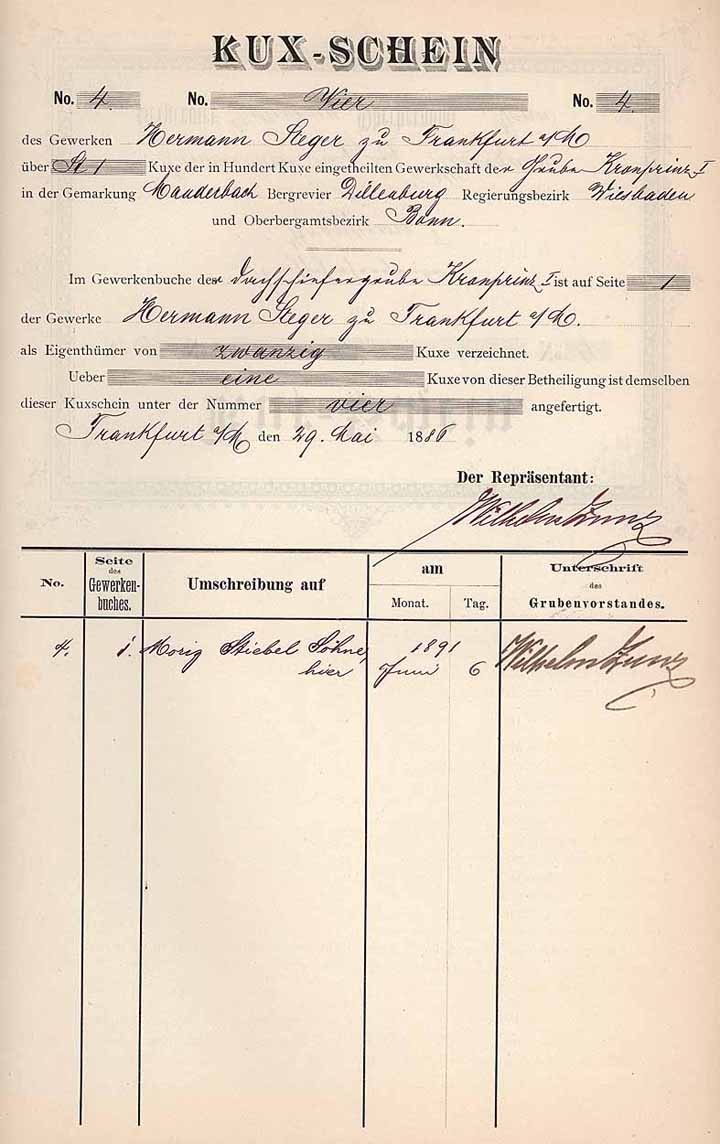 KUX-SCHEIN
No. 4. No. Vier No. 4.
des Gewerken Hermann Steger zu Frankfurt a/M
über St 1 Kuxe der in Hundert Kuxe eingetheilten Gewerkschaft der Grube Kronprinz I
in der Gemarkung Manderbach Bergrevier Dillenburg Regierungsbezirk Wiesbaden
und Oberbergamtsbezirk Bonn.
Im Gewerkenbuche der Dachschiefergrube Kronprinz I ist auf Seite 1
der Gewerke Hermann Steger zu Frankfurt a/M.
als Eigenthümer von zwanzig Kuxe verzeichnet.
Ueber eine Kuxe von dieser Betheiligung ist demselben
dieser Kuxschein unter der Nummer vier angefertigt.
Frankfurt a/M den 29. Mai 1886
Der Repräsentant:
Wilhelm Zunz
No. Seite des Gewerken-buches. Umschreibung auf am Monat. Tag. Unterschrift des Grubenvorstandes.
4. 1. Moriz Stiebel Söhne, 1891 Wilhelm Zunz
hier Juni 6